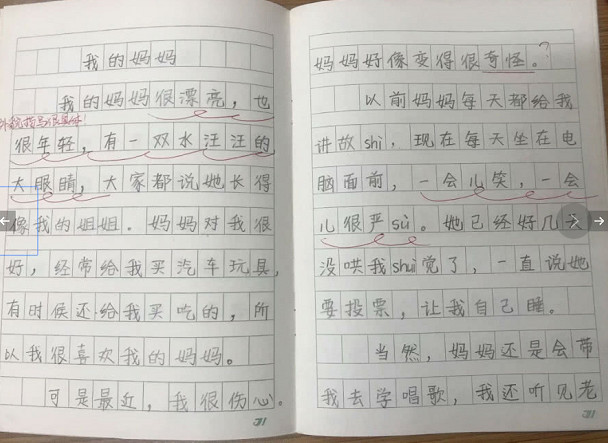 我的妈妈
我的妈妈很漂亮，也
很年轻，有一双水汪汪的
大眼睛，大家都说她长得
像我的姐姐。妈妈对我很
好，经常给我买汽车玩具，
有时侯还给我买吃的，所
以我很喜欢我的妈妈。
可是最近，我很伤心。
妈妈好像变得很奇怪。?
以前妈妈每天都给我
讲故shi，现在每天坐在电
脑面前，一会儿笑，一会
儿很严sù。她已经好几天
没哄我shuì觉了，一直说她
要投票，让我自己睡。
当然，妈妈还是会带
我去学唱歌，我还听见老